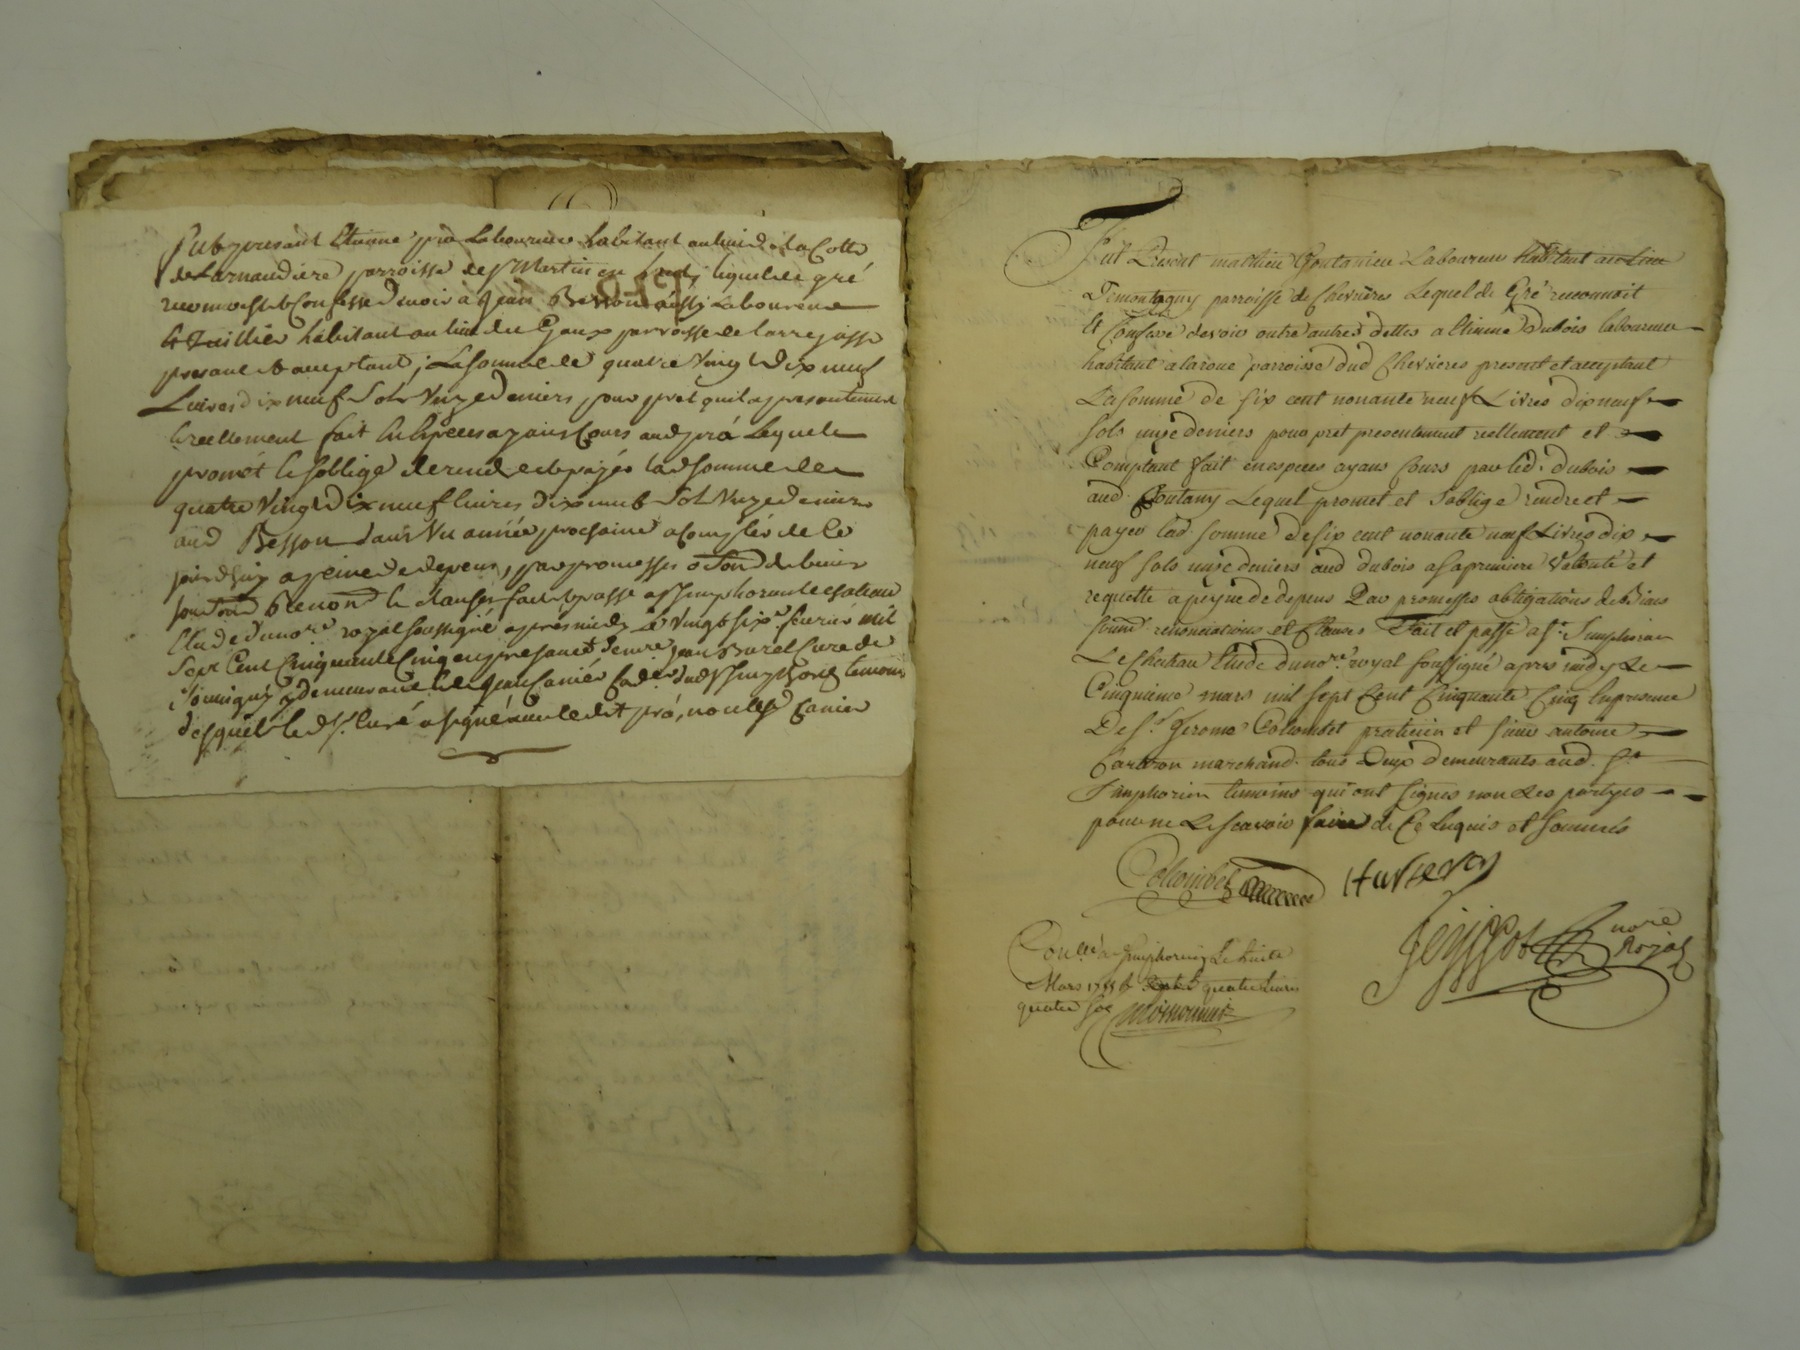 Fut present Etienne pra Laboureur habitant au lieu de la Cotte
de Larnaudiere parroisse de St Martin en
reconnoist et Confesse devoir à Jean Besson aussy Laboureur
et Tuillier habitant au lieu de parroisse de larrajasse
present et acceptant, La somme de quatre vingt dix neuf
Livres dix neuf Sols Unze deniers pour pret quil a presentement
et reellement fait En Especes ayant Cours aud pra Lequel
promet et soblige de rendre et payér lad somme de
quatre Vingt Dix neuf livres dix neuf Sols Unze deniers
aud Besson dans Un année prochaine a Compter de Ce
jourdhuy a peine de depens, par promesses de biens
Renon et clauses fait et passe a St Simphorien le chateau
Etude du nore royal soussigné apres midy Le Vingt six fevrier mil
Sept Cent Cinquante Cinq en presance de mre Jean Burel Cure de
y demeurant et Jean Canier dud St Simphorien temoins
desquels le d. Sr. Curé a signé non ledit pra, non led Canier
Fut Present mathieu Coutanieu Laboureur habitant au Lieu
De montagny parroisse de Chevrieres Lequel de Gré reconnoit
Et Confesse devoir outre autres dettes a Etienne Dubois laboureur
habitant a laroue parroisse dud Chevrieres present et acceptant
La somme de six cent nonante neuf Livres dix neuf
sols unze deniers pour pret presentement reellement et
Comptant fait en especes ayans Cours par led. dubois
aud. Coutany Lequel promet et soblige rendre et
payer lad somme de six cent nonante neuf Livres dix
neuf sols unze deniers aud dubois a sa premiere Volonté et
requette a peyne de depens Par promesses obligations de Biens
soumis renonciations et Clauses Fait et passé a St. Simphorien
Le Chateau Etude du nore. royal soussigné apres midy Le
Cinquieme mars mil sept Cent Cinquante Cinq En presence
De Sr. Jerome Colombet praticien et sieur antoine
marchand tous Deux demeurants aud. St
Simphorien temoins qui ont signés non Les partyes
pour ne Le scavoir faire de Ce Enquis et sommés
Colombet
nore Royal
Conllé a St Simphorien Le huit
Mars 1755 quatre livres
quatre sols